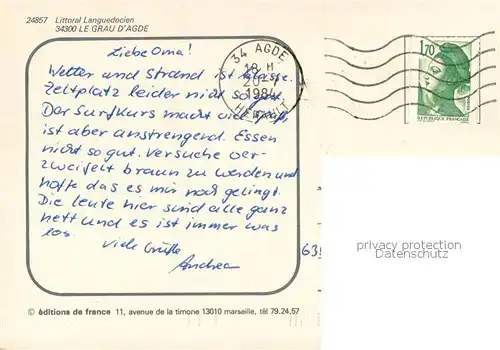 24857 Littoral Languedocien
34300 LE GRAU D'AGDE
Liebe Oma!
Wetter und Strand ist klasse.
Zeltplatz leider nicht so gut.
Der Surfkurs macht viel Spaß,
ist aber anstrengend. Essen
nicht so gut. Versuche ver-
zweifelt braun zu werden und
hoffe das es mir noch gelingt.
Die Leute hier sind alle ganz
nett und es ist immer was
los.
Viele Grüße
Andrea
34 AGDE
18 H
1984
HERAULT
1,70
REPUBLIQUE FRANÇAISE
63
privacy protection
Datenschutz
© éditions de france 11, avenue de la timone 13010 marseille, tél 79.24.57